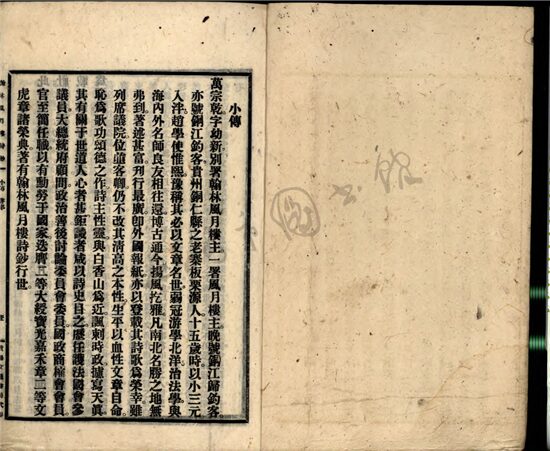 小傳
萬宗乾字幼新別署翰林風月樓主一署風月樓主晚號銅江歸釣客
亦號銅江釣客貴州銅仁縣之老寨板栗源人十五歲時以小三元
入泮趙學使惟熙豫稱其必以文章名世弱冠游學北洋治法學與
海內外名師良友相往還博古通今揚風扢雅凡南北名勝之地無
弗到著述甚富刊行最廣卽外國報紙亦以登載其詩歌爲榮幸雖
列席議院位躋客卿仍不改其清高之本性生平以血性文章自命
恥爲歌功頌德之作詩主性靈與白香山爲近諷刺時政攄寫天眞
其有關于世道人心者甚鉅識者咸以詩史目之歷任護法國會參
議員大總統府顧問政治善後討論委員會委員國政商榷會會員
官至簡任職以有勳勞于國家迭膺三等大綬寶光嘉禾章二等文
虎章諸榮典著有翰林風月樓詩鈔行世